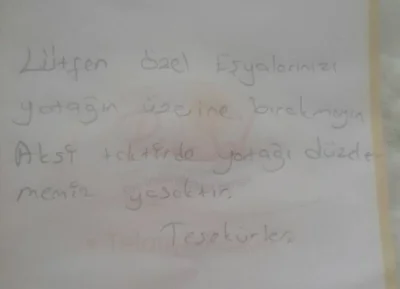 Lütfen özel Eşyalarınızı
yatağın üzerine bırakmayın
Aksi taktirde yatağı düzele
memiz yasaktır.
Teşekürler